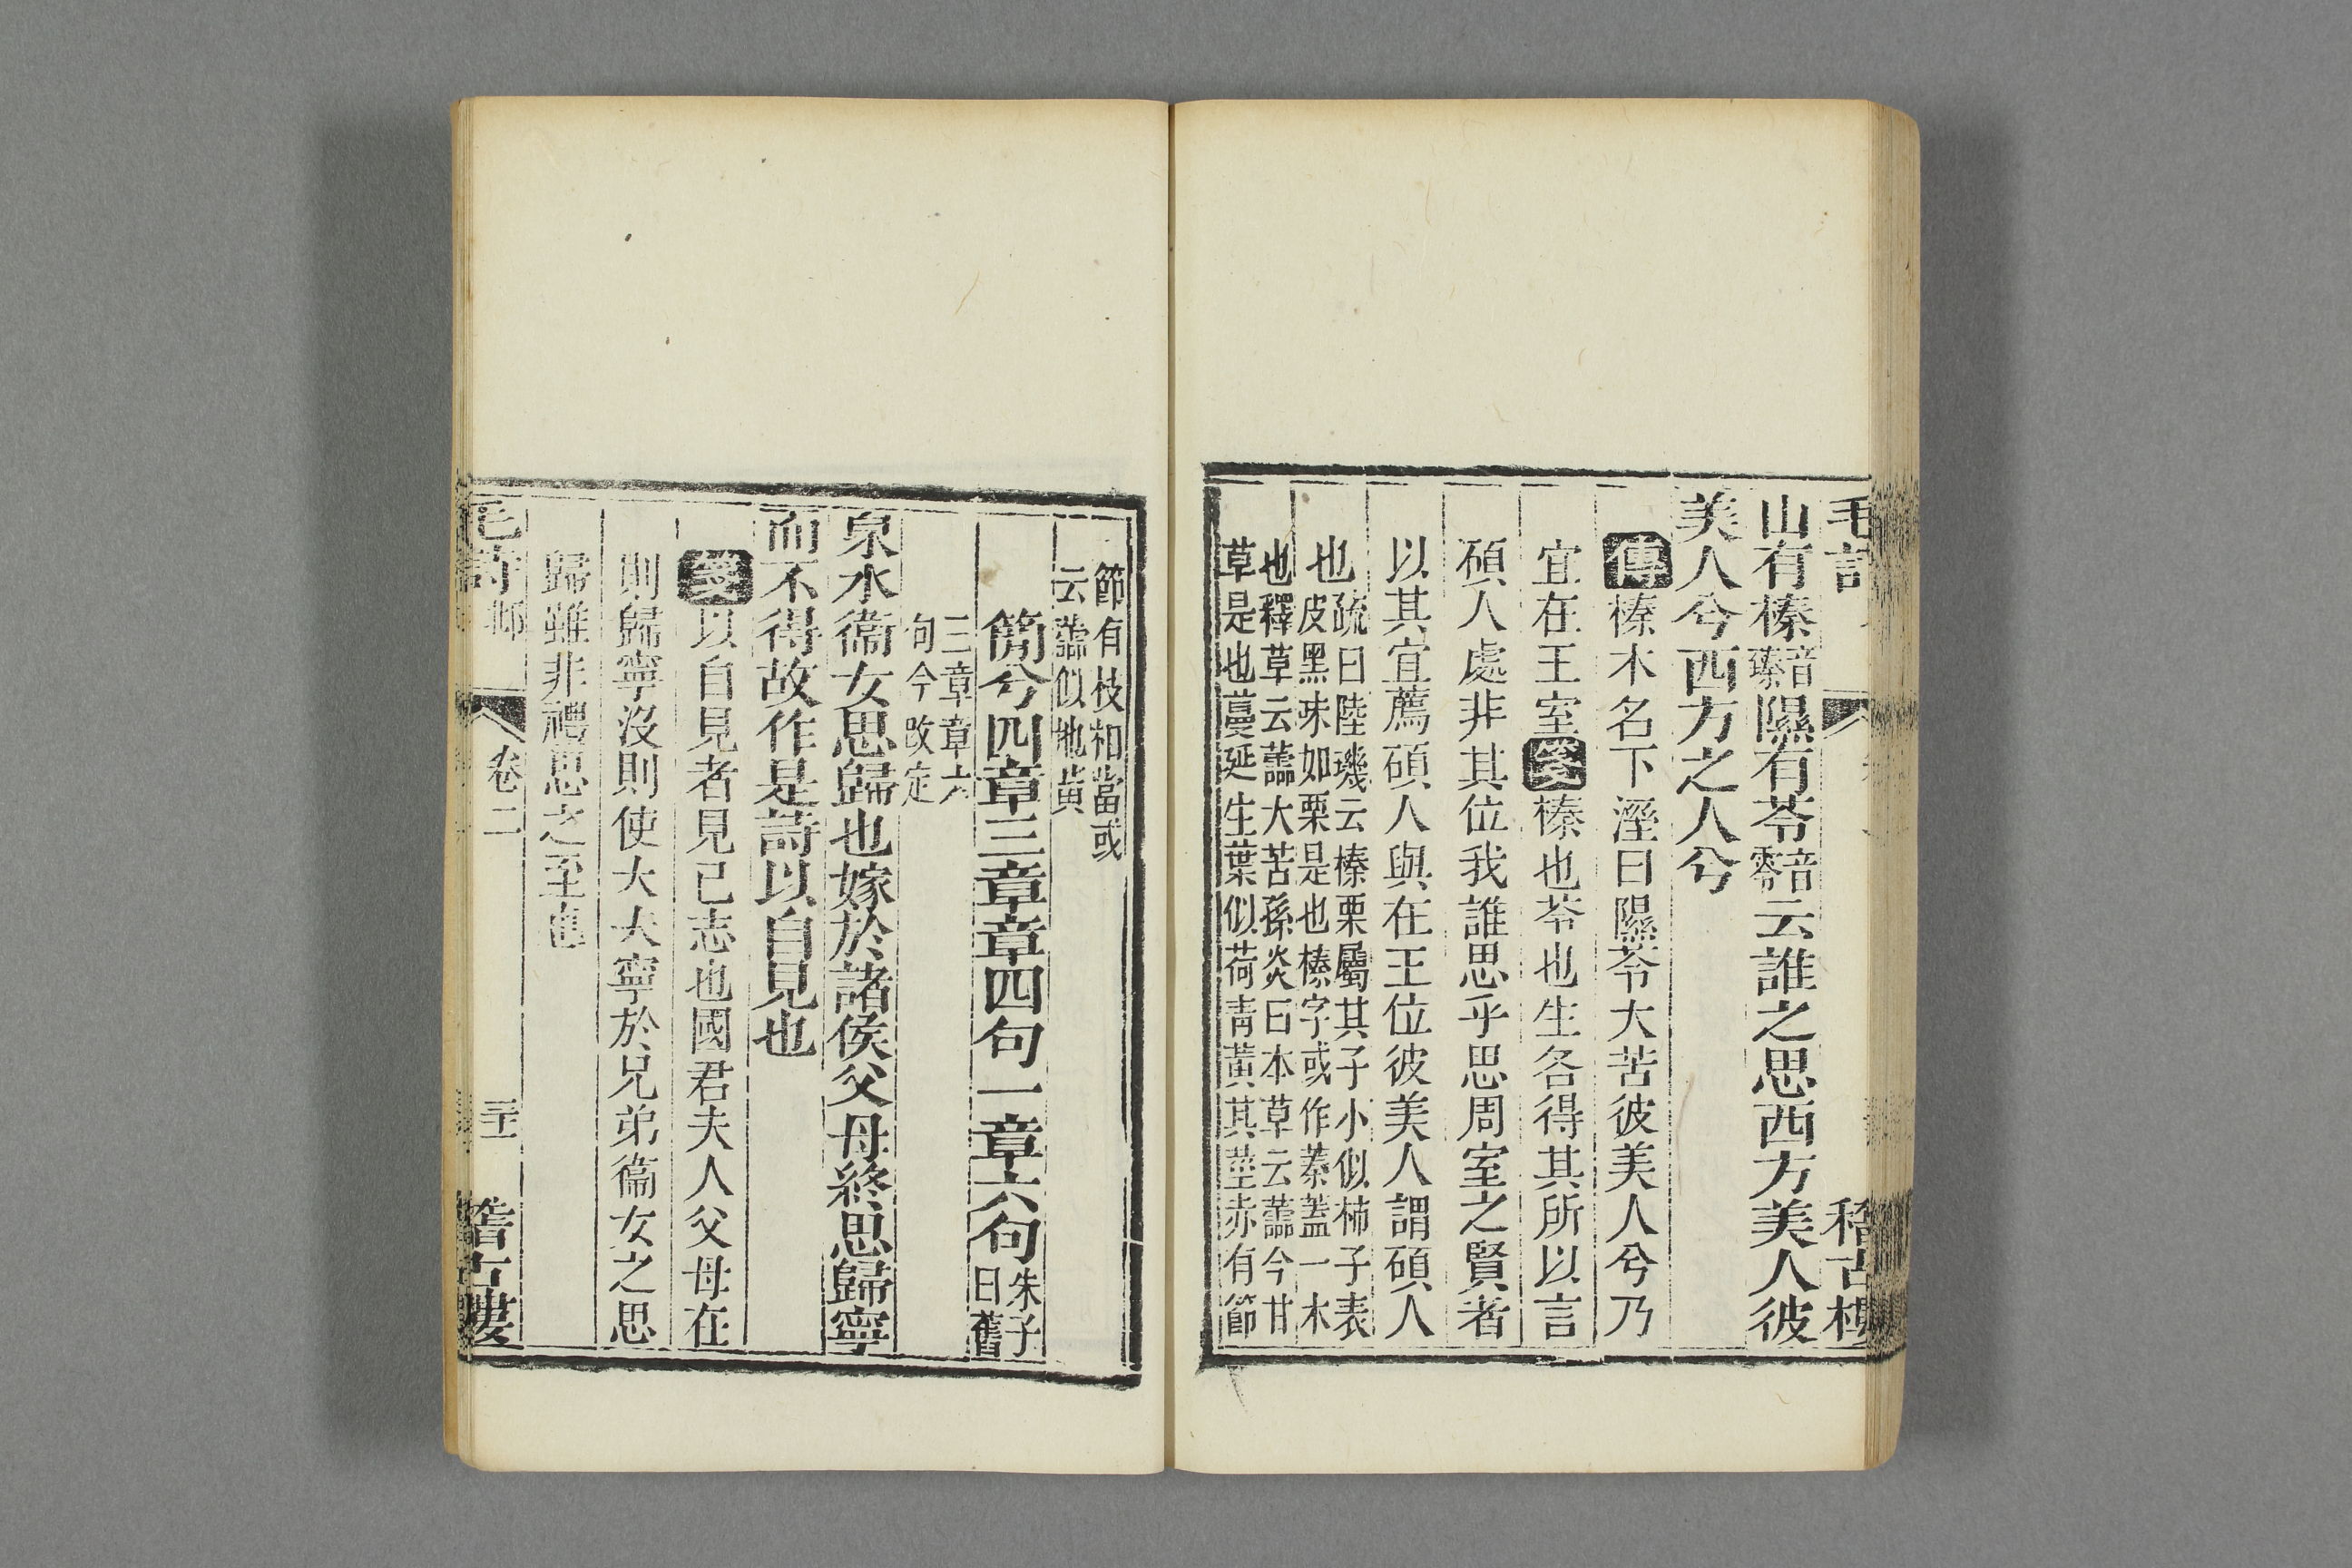 毛詩
稽古樓
山有榛音臻隰有苓音零云誰之思西方美人彼
美人兮西方之人兮
傳榛木名下溼曰隰苓大苦彼美人兮乃
宜在王室箋榛也苓也生各得其所以言
碩人處非其位我誰思乎思周室之賢者
以其宜薦碩人與在王位彼美人謂碩人
也疏曰陸璣云榛栗屬其子小似柿子表
皮黑味如栗是也榛字或作蓁蓋一木
也釋草云蘦大苦孫炎曰本草云蘦今甘
草是也蔓延生葉似荷青黃其莖赤有節
節有枝相當或
云蘦似地黃
簡兮四章三章章四句一章六句朱子曰舊
三章章六
句今改定
泉水衞女思歸也嫁於諸侯父母終思歸寧
而不得故作是詩以自見也
箋以自見者見己志也國君夫人父母在
則歸寧沒則使大夫寧於兄弟衞女之思
歸雖非禮思之至也
毛詩 邶 卷二 三十一 稽古樓